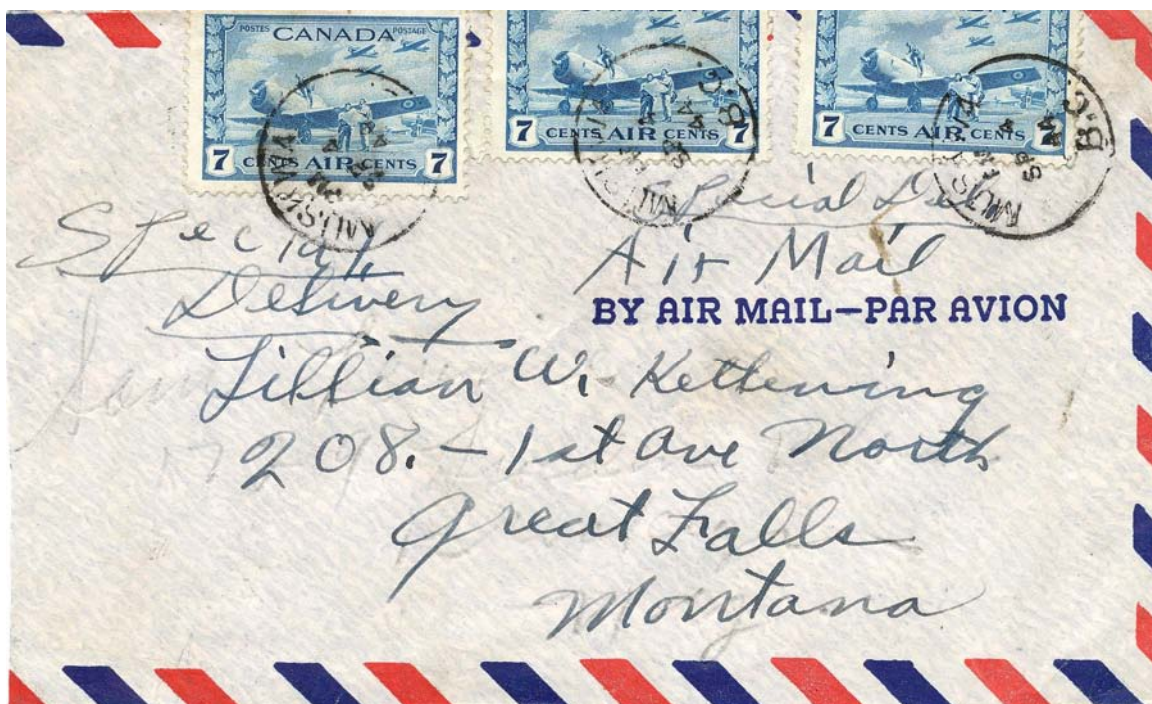 POSTES CANADA POSTAGE
7 CENTS AIR CENTS 7
7 CENTS AIR CENTS 7
7 CENTS AIR CENTS 7
MUSKWA
B.C.
B.C.
Special Del
Special
Delivery
Air Mail
BY AIR MAIL—PAR AVION
Lillian W. Kettewing
208. - 1st Ave North
Great Falls
Montana